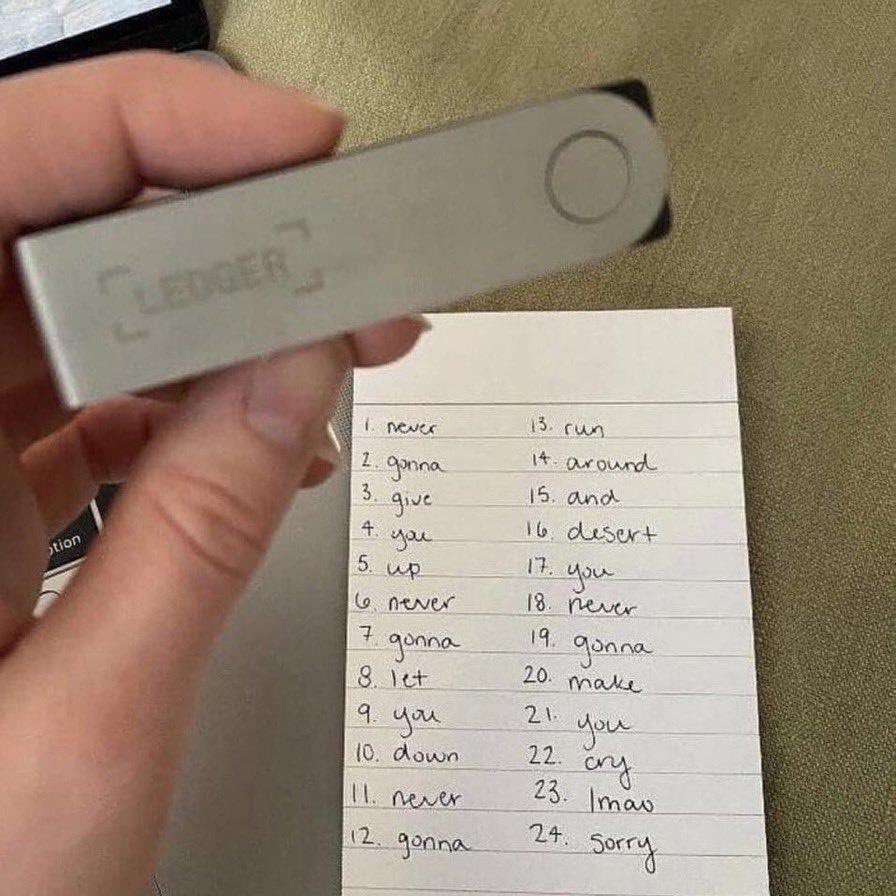 LEDGER
tion
1. never
2. gonna
3. give
4. you
5. up
6. never
7. gonna
8. let
9. you
10. down
11. never
12. gonna
13. run
14. around
15. and
16. desert
17. you
18. never
19. gonna
20. make
21. you
22. cry
23. lmao
24. sorry